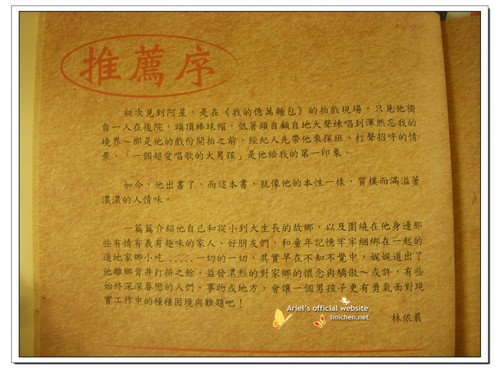 推薦序
初次見到阿星，是在《我的億萬麵包》的拍戲現場，只見他獨
自一人在後院，頭頂棒球帽，低著頭自顧自地大聲練唱到渾然忘我的
境界－那是他的戲份開拍之前，經紀人先帶他來探班、打聲招呼的情
景，「一個超愛唱歌的大男孩」是他給我的第一印象。
如今，他出書了，而這本書，就像他的本性一樣，質樸而滿溢著
濃濃的人情味。
一篇篇介紹他自己和從小到大生長的故鄉，以及圍繞在他身邊那
些有情有義有趣味的家人、好朋友們，和童年記憶牢牢綑綁在一起的
道地家鄉小吃......一切的一切，其實早在不知不覺中，娓娓道出了
他離鄉背井打拚之餘，益發濃烈的對家鄉的懷念與驕傲～或許，有些
始終深深眷戀的人們，事物或地方，會讓一個男孩子更有勇氣面對現
實工作中的種種困境與難題吧！
林依晨
Ariel's official website
limchen.net